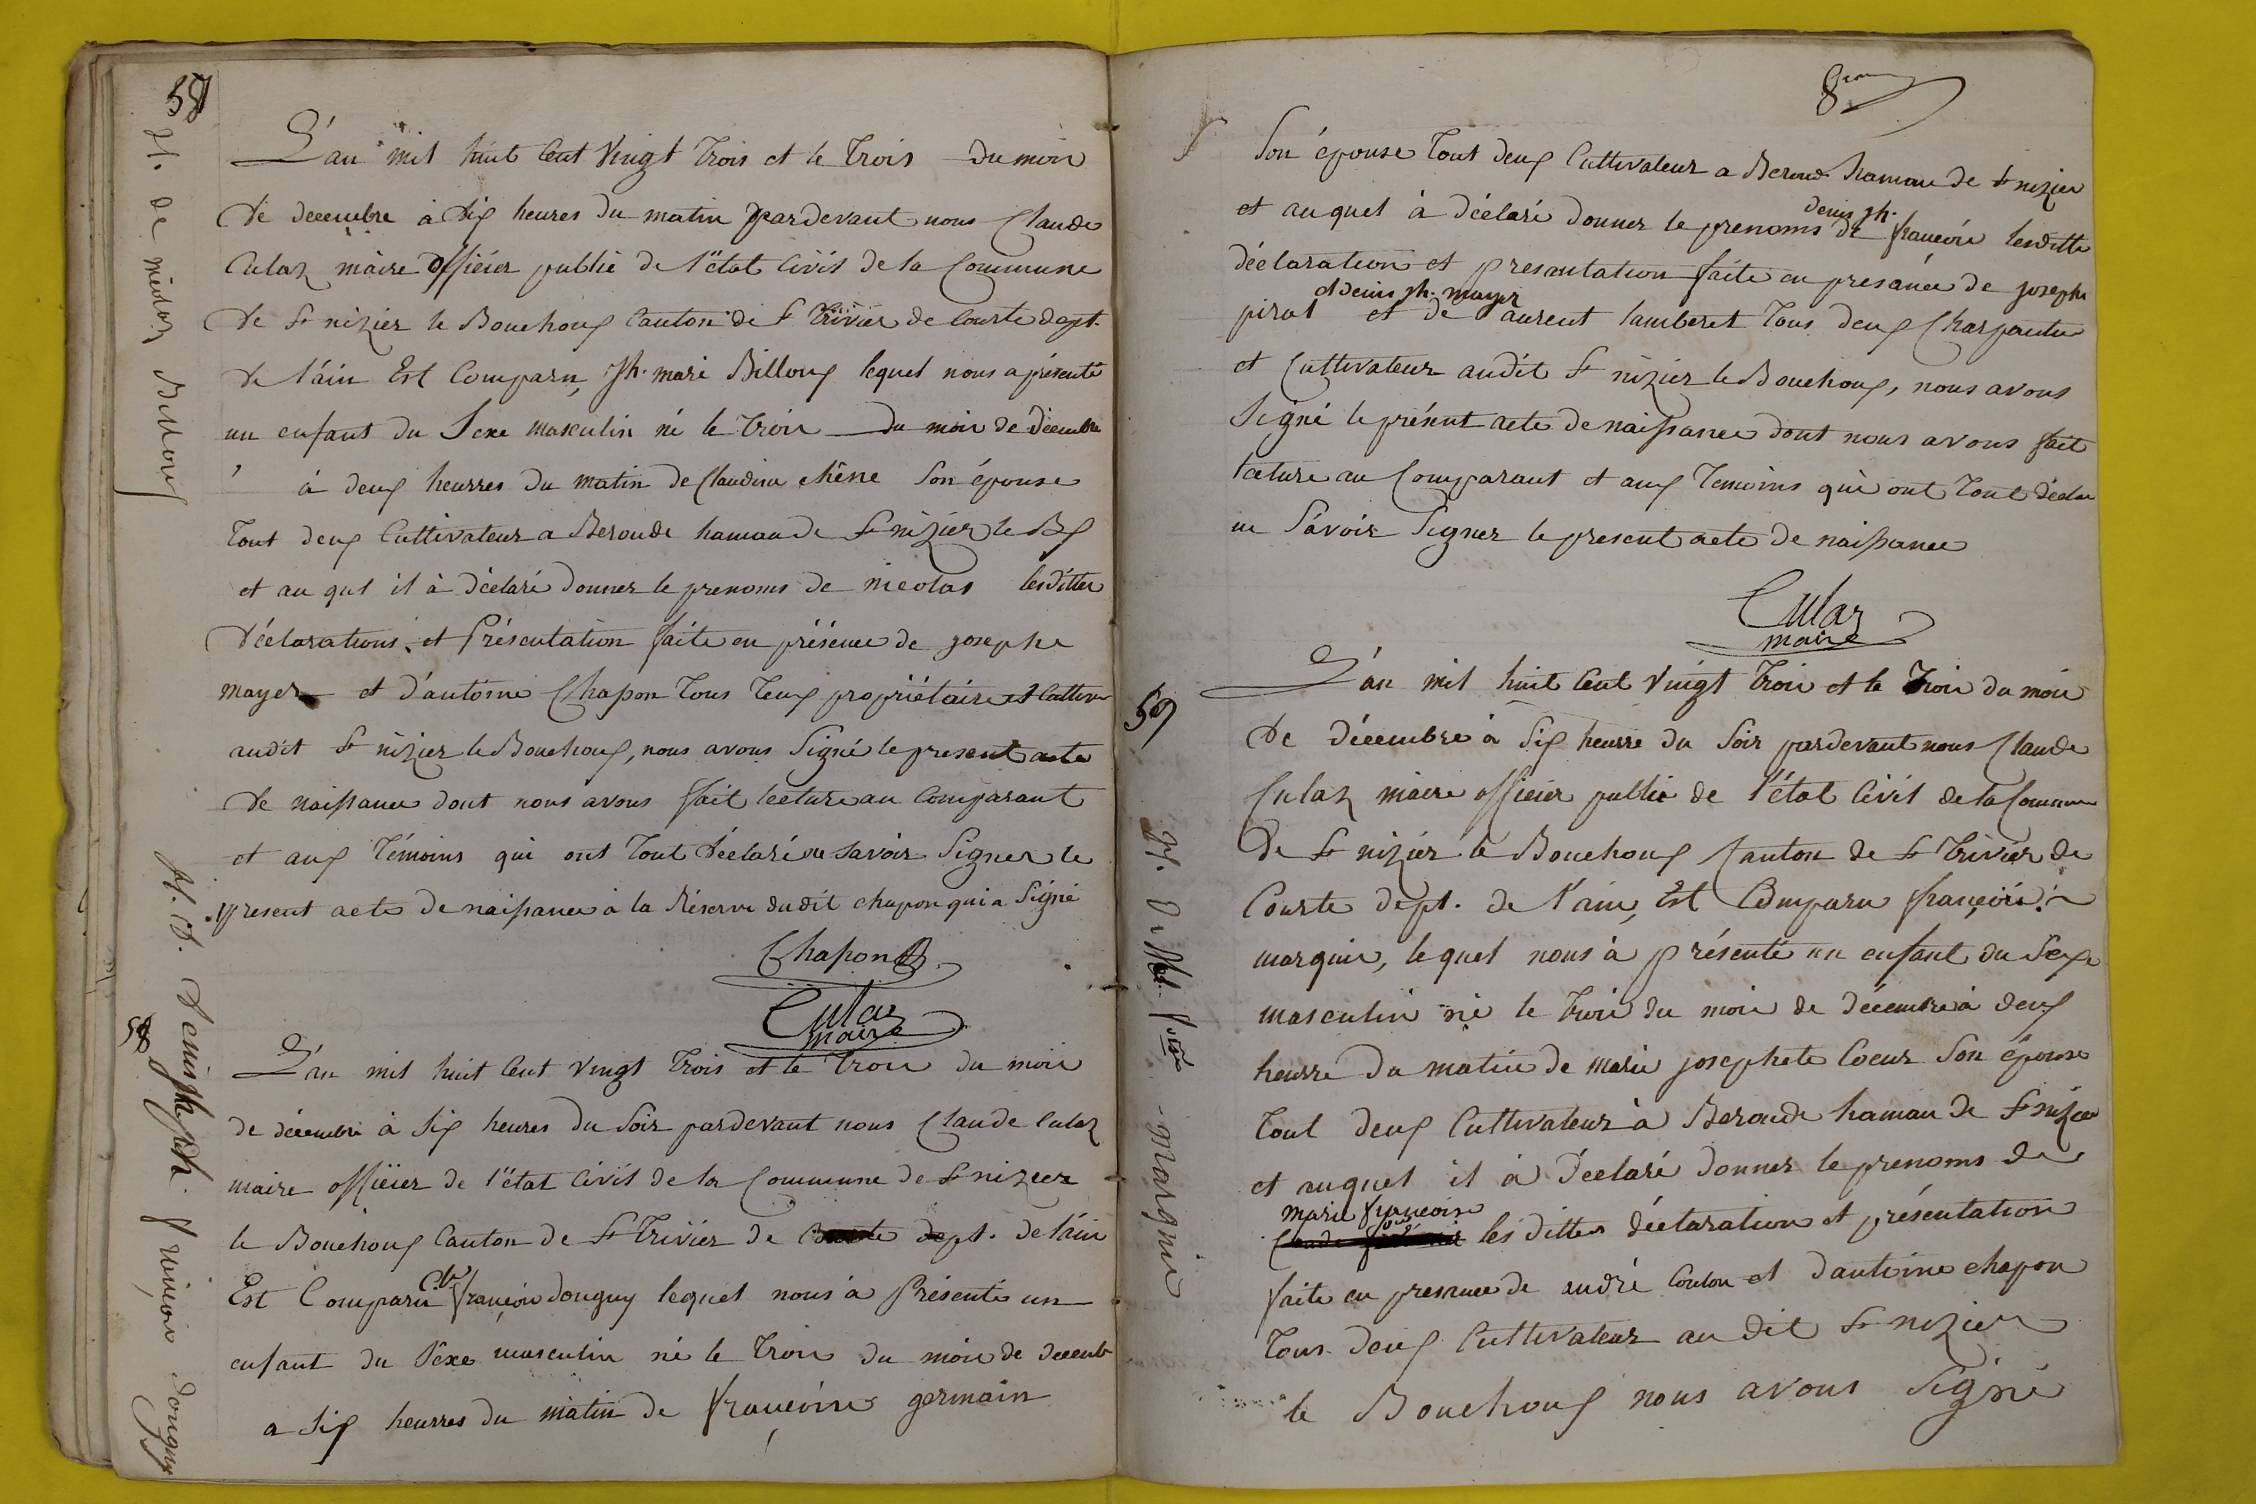 57
N. de nicolas Billoux
L'an mil huit Cent Vingt Trois et le Trois du mois
De decembre à dix heures du matin pardevant nous Claude
Culaz maire officier public de l'état Civil de la Commune
De St nizier le Bouchoux Canton de St Trivier de Courte dept.
De l'ain Est Comparu, Jh. marie Billoux lequel nous a présenté
un enfant du Sexe masculin né le Trois du mois de décembre
à deux heurres du matin de Claudine chêne Son épouse
Tout deux Cultivateur a Beroude hamau de St nizier le Bx
et au quel il à déclaré donner le prenoms de nicolas lesdittes
Déclarations et Présentation faite en présence de josephe
mayer et d'antoine Chapon Tous Deux propriétaire et Cultiva
audit St nizier le Bouchoux, nous avons Signé le present acte
De naissance dont nous avons fait lecture au Comparant
et aux Témoins qui ont Tout Déclaré ne Savoir Signer le
present acte de naissance à la Réserve dudit chapon qui a Signé
Chapon
Culaz
maire
58
N. d. Denis Jph. françois Donguy
L'an mil huit Cent Vingt Trois et le Trois du mois
de décembre à Six heures du Soir pardevant nous Claude Culaz
maire officier de l'état Civil de la Commune de St nizier
le Bouchoux Canton de St Trivier de Courte dept. de l'ain
Est Comparu Cde françois donguy lequel nous à Présenté un
enfant du Sexe masculin né le Trois du mois de decemb
a Six heurres du matin de françoise germain
8
Son épouse Tout deux Cultivateur a Beroud hamau de St nizier
et auquel à déclaré donner le prenoms de denis jh. françois lesditte
déclaration et presantation faite en presance de josephe
pirat et denis jh. mayer et de laurent lamberet Tous deux Charpantie
et Cultivateur audit St nizier le Bouchoux, nous avons
Signé le présent acte de naissance dont nous avons fait
lecture au Comparant et aux Temoins qui ont Tout déclar
ne Savoir Signer le present acte de naissance
Culaz
maire
59
L'an mil huit Cent Vingt Trois et le Trois du mois
De décembre à Six heurre du Soir pardevant nous Claude
Culaz maire officier public de l'état Civil de la Commune
De St nizier le Bouchoux Canton de St Trivier de
Courte dept. de l'ain, Est Comparu françois
marguin, lequel nous à présenté un enfant du Sexe
masculin né le Trois du mois de décembre à deux
heurre du matin de marie josephete Coeur Son épouse
Tout deux Cultivateur à Beroude hamau de St nizier
et auquel il à déclaré donner le prenoms de
marie françois
les dittes déclaration et présentation
faite en presance de andré Coulon et dantoine chapon
Tous deux Cultivateur au dit St nizier
le Bouchoux nous avons Signé